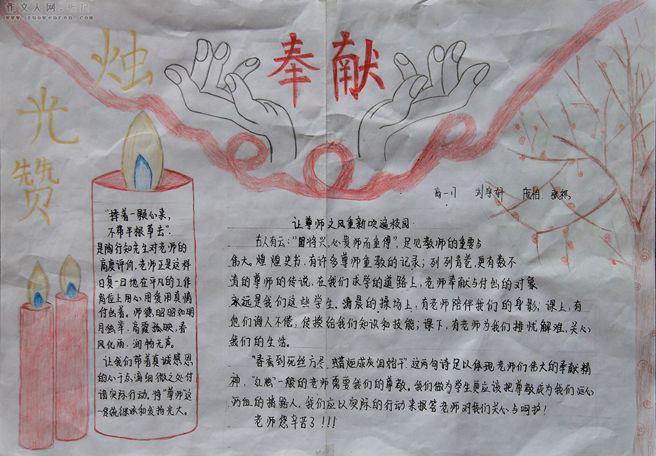 作文人网
www.zuowenren.com
烛
光
赞
奉献
高一
让尊师之风重新吹遍校园
古人有云:"国将兴,心贵师而重傅",足见教师的重要与
伟大,煌煌史书,有许多尊师重教的记录;列列青艺,更有数不
清的尊师的传说,在我们求学的道路上,老师奉献与付出的对象
永远是我们这些学生,清晨的操场上,有老师陪伴我们的身影;课上,有
他们诲人不倦,传授给我们知识和技能;课下,有老师为我们排忧解难,关心
我们的生活。
"春蚕到死丝方尽,蜡炬成灰泪始干"这两句诗足以体现老师们伟大的奉献精
神,一般的老师需要我们的尊敬,我们做为学生更应该把尊敬成为我们
的我们应以实际的行动来报答老师对我们关心与呵护!
老师您辛苦了!!!
"捧着一颗心来,
不带半根草去",
是陶行知先生对老师的
高度评价,老师正是这样
日复一日地在平凡的工作
岗位上用心用爱用真情
付出着,师德,昭昭如明
月独举,高霞孤映,春
风化雨,润物无声。
让我们带着真诚感恩
的心于点滴细微之处付
诸实际行动,将"尊师"这
一美德继承和发扬光大。